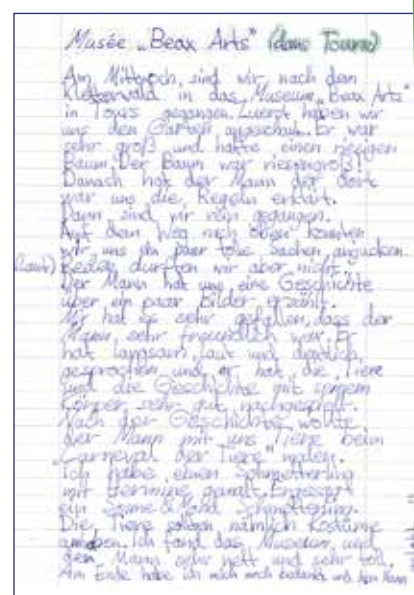 Musée „Beax Arts" (dans Tours)
Am Mittwoch, sind wir nach dem
Kletterwald in das Museum „Beax Arts"
in Tours gegangen. Zuerst haben wir
uns den Garten angeschaut. Er war
sehr groß und hatte einen riesigen
Baum. Der Baum war riesengroß!
Danach hat der Mann der dort
war uns die Regeln erklärt.
Dann sind wir rein gegangen.
Auf dem Weg nach oben konnten
wir uns ein paar tolle Sachen angucken.
(laut) Reden durften wir aber nicht.
Der Mann hat uns eine Geschichte
über ein paar Bilder erzählt.
Mir hat es sehr gefallen, dass der
Mann sehr freundlich war. Er
hat langsam, laut und deutlich,
gesprochen und er hat die Tiere
und die Geschichte mit seinem
Körper sehr gut nachgespielt.
Nach der Geschichte wollte
der Mann mit uns Tiere beim
„Carneval der Tiere" malen.
Ich habe einen Schmetterling
mit gemalt.
ein Sonne & Mond Schmetterling.
Die Tiere sollten nämlich Kostüme
anhaben. Ich fand das Museum und
den Mann sehr nett und sehr toll.
Am Ende habe ich mich noch bedankt und dem Mann